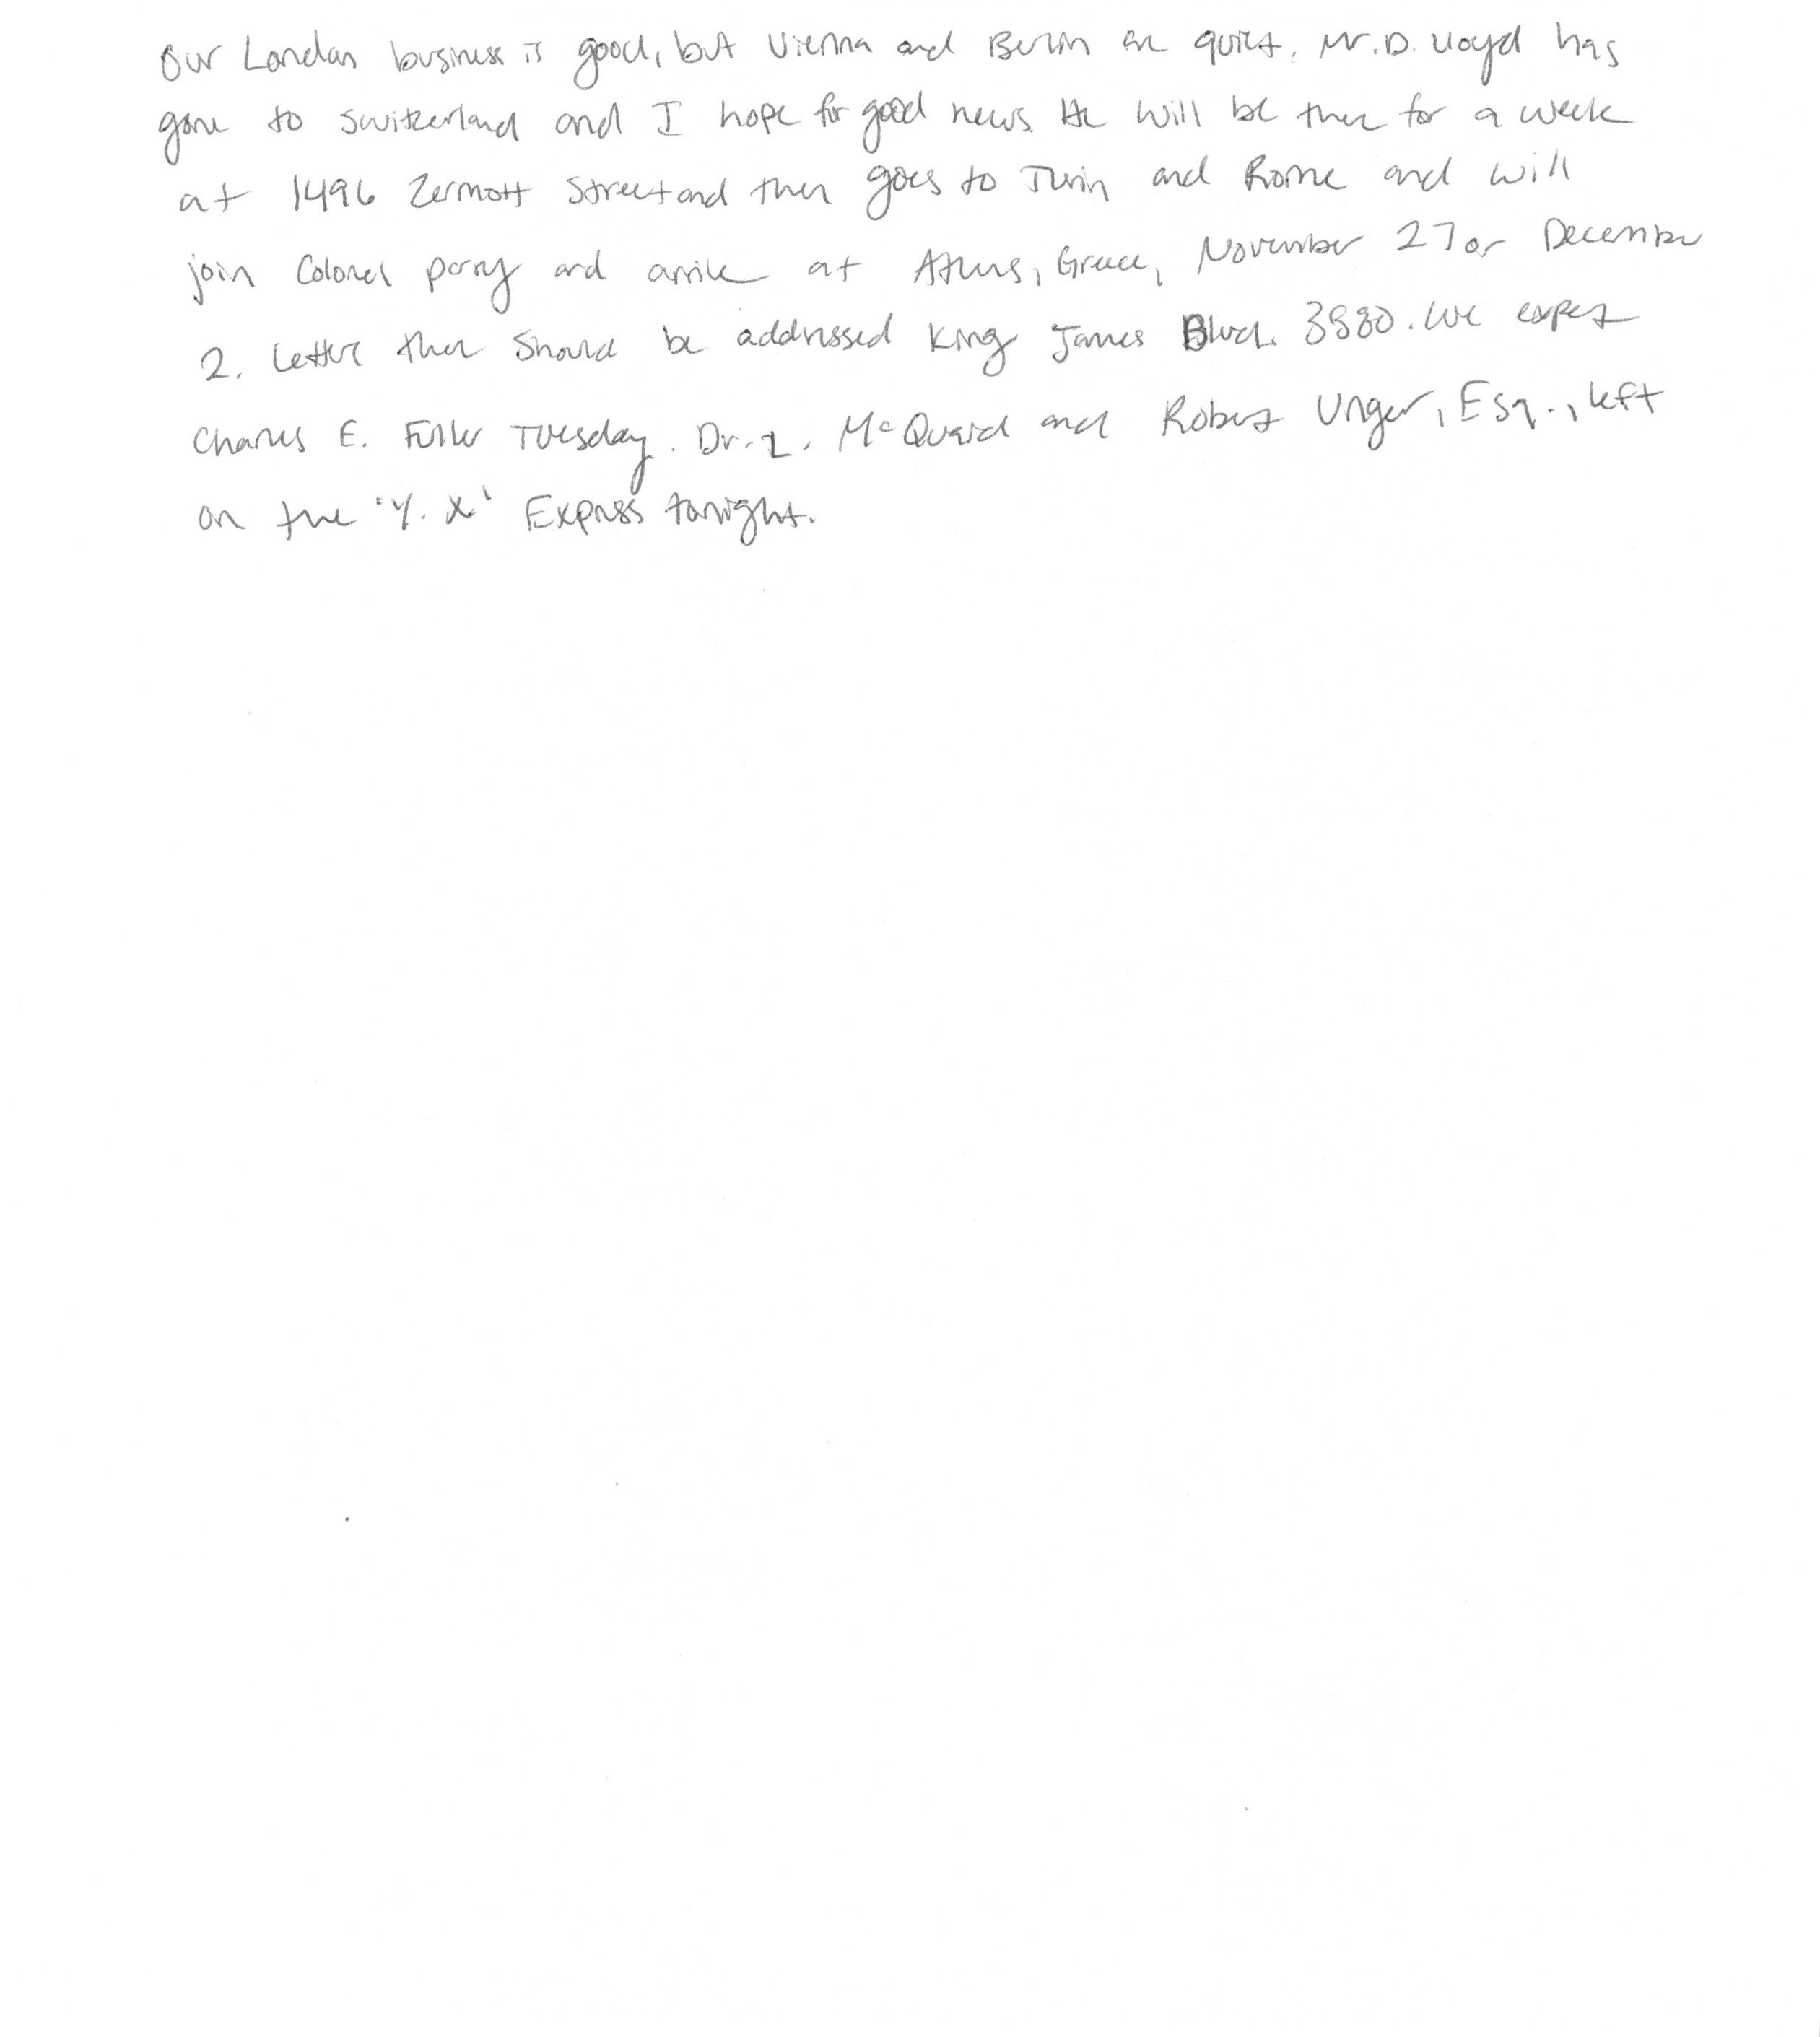 Our London business is good, but Vienna and Berlin are quiet. Mr. D. Lloyd has
gone to Switzerland and I hope for good news. He will be there for a week
at 1496 Zermott Street and then goes to Turin and Rome and will
join Colonel Parry and arrive at Athens, Greece, November 27 or December
2. Letter there should be addressed King James Blvd. 3880. We expect
Charles E. Fuller Tuesday. Dr. L. McQuaid and Robert Unger, Esq., left
on the 'Y. X.' Express tonight.